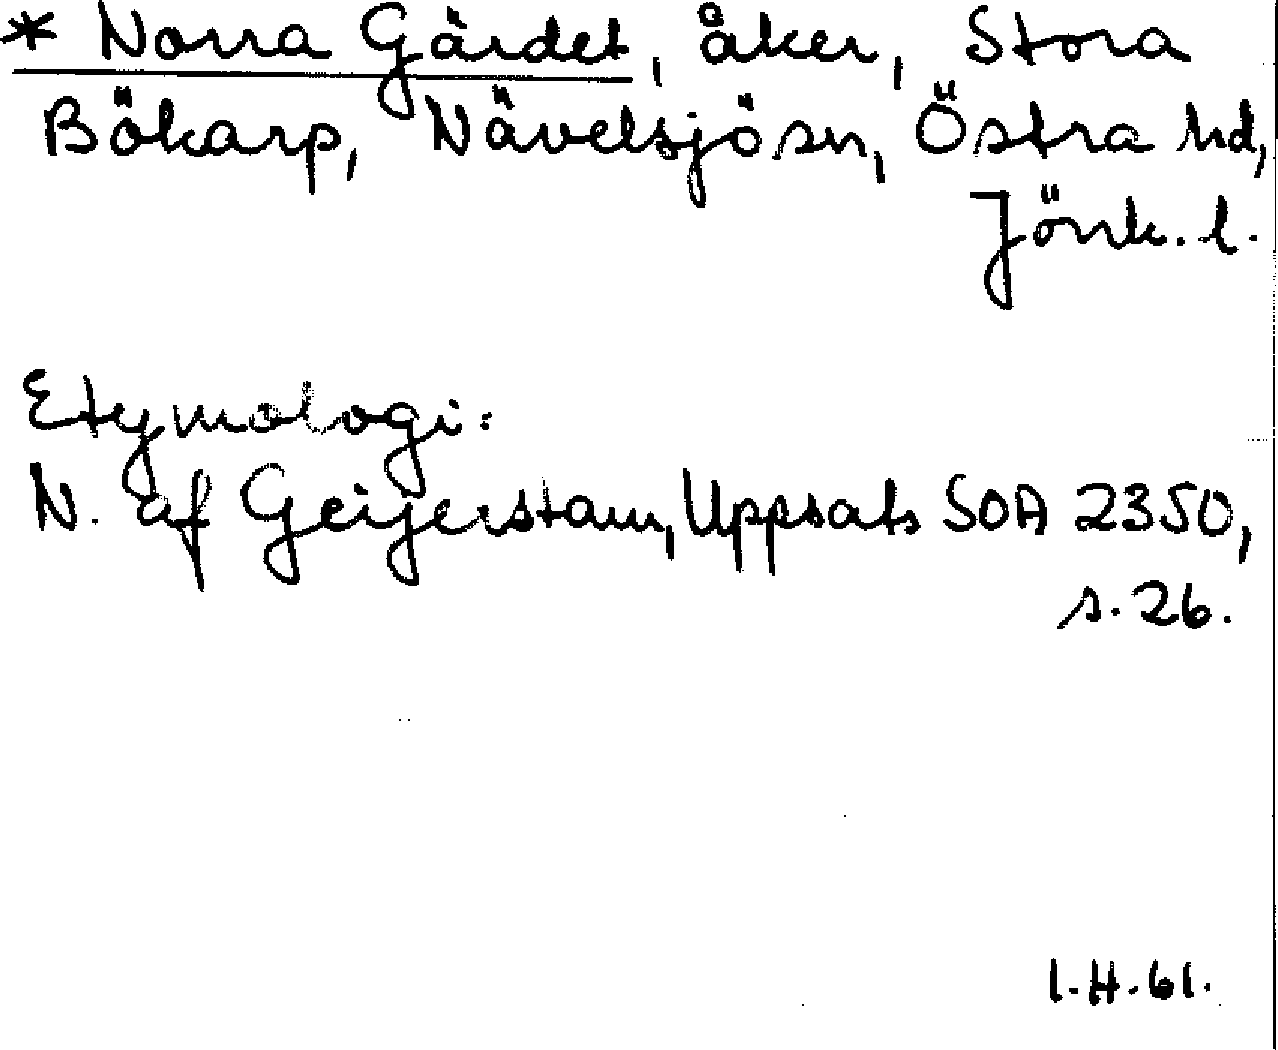 * Norra Gärdet, åker, Stora
Bökarp, Nävelsjösn, Östra hd,
Jönk. l.
Etymologi:
N. af Geijerstam, Uppsats SOA 2350,
s. 26.
I.H.61.